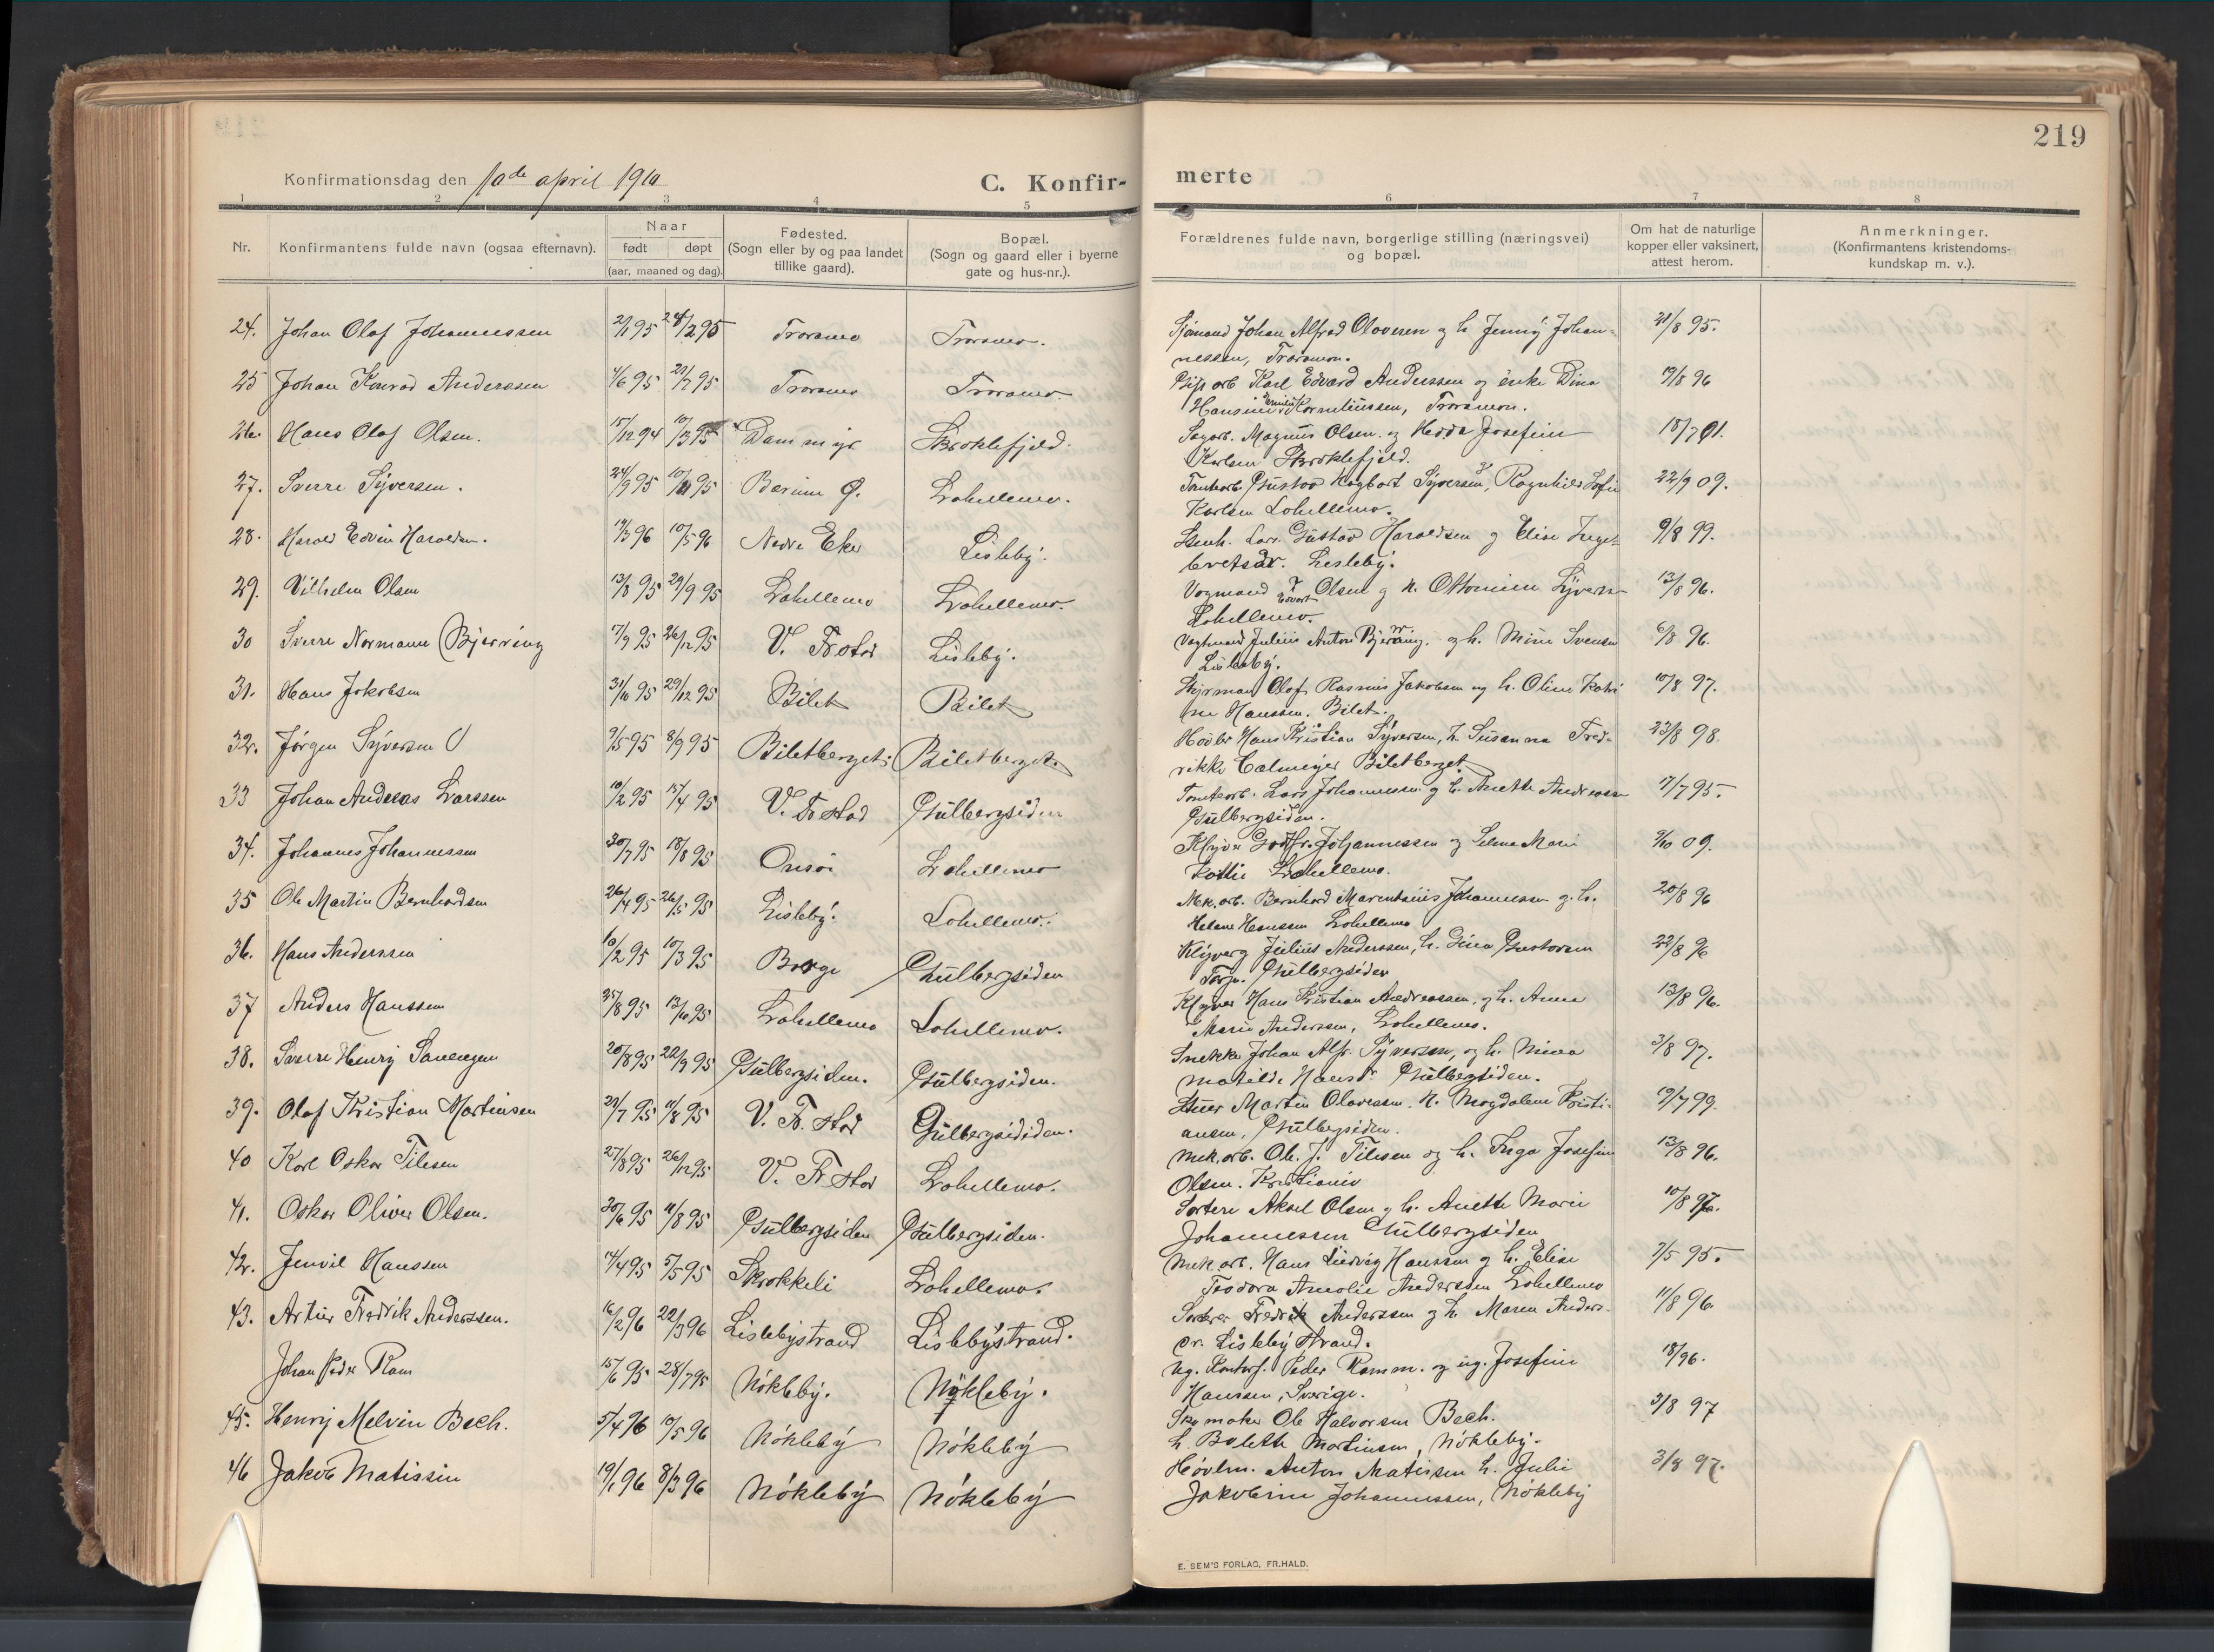 219
Konfirmationsdag den 10de april 1910
C. Konfir-
merte
1 2 3 4 5 6 7 8
Nr.
Konfirmantens fulde navn (ogsaa efternavn).
Naar
født døpt
(aar, maaned og dag).
Fødested.
(Sogn eller by og paa landet
tillike gaard).
Bopæl.
(Sogn og gaard eller i byerne
gate og hus-nr.).
Forældrenes fulde navn, borgerlige stilling (næringsvei)
og bopæl.
Om hat de naturlige
kopper eller vaksinert,
attest herom.
Anmerkninger.
(Konfirmantens kristendoms-
kundskap m. v.).
24. Johan Olaf Johannessen 2/1 95 24/2 95 Trorsmo Trorsmo. Sjömand Johan Alfred Olavesen og h. Jenny Johan- 21/8 95.
nessen, Trorsmoen.
25 Johan Konrad Anderssen 4/6 95 21/7 95 Trorsmo Trorsmo. arb. Karl Edvard Anderssen og enke Dina 19/8 96
Hansine Emilie Korneliussen, Trorsmoen.
26. Hans Olaf Olsen. 15/12 94 10/3 95 Dammyr Skroklefjeld. Sagarb. Magnus Olsen og Hedda Josefine 18/7 01.
Karlsen Skroklefjeld.
27. Sverre Syversen. 24/9 95 10/11 95 Berum Ø. Lahellemo. Tomtearb. Gustav Hagbart Syversen, Ragnhild Sofie 22/9 09.
Karlsen Lahellemo.
28. Harald Edvin Haraldsen. 19/3 96 10/5 96 Nedre Eker Lisleby. Stenh. Lars Gustav Haraldsen og Elise Inge- 9/8 99.
bretsdr. Lisleby.
29. Vilhelm Olsen 13/8 95 29/9 95 Lahellemo Lahellemo. Vogmand Edvart Olsen og h. Ottomine Syversen 13/8 96.
Lahellemo.
30 Sverre Normann Bjerring 17/9 95 26/12 95 V. Fr.stad Lisleby. Vogtmand Julius Anton Bjerring. og h. Mina Svensen 6/8 96.
Lisleby.
31. Hans Jakobsen 31/10 95 29/12 95 Bilet Bilet Styrmand Olaf Rasmus Jakobsen og h. Oline Katri 10/8 97.
ne Hanssen. Bilet.
32. Jörgen Syversen 9/5 95 8/9 95 Biletberget. Biletberget. Hans Kristian Syversen, h. Susanna Fred- 23/8 98.
rikke Calmeyer Biletberget.
33 Johan Andreas Larssen 10/2 95 15/4 95 V. Fr.stad Gulbergsiden Tomtearb. Lars Johannessen og h. Anette Andreassen 17/7 95.
Gulbergsiden.
34. Johannes Johannessen 30/7 95 18/8 95 Onsøi Lahellemo Klyver Godtfr. Johannessen og Selma Marie 9/10 09.
Lahellemo.
35 Ole Martin Bernhardsen 26/4 95 26/5 95 Lisleby. Lahellemo. Mek. arb. Bernhard Marentsius Johannessen og h. 20/8 96
Helene Hanssen Lahellemo
36. Hans Anderssen 10/2 95 10/3 95 Borge Gulbergsiden Klyver Julius Anderssen, h. Gina Gustavsen 22/8 96
Gulbergsiden
37 Anders Hanssen 25/8 95 13/10 95 Lahellemo Lahellemo. Klyver Hans Kristian Andreassen, og h. Anne 13/8 96.
Marie Anderssen, Lahellemo.
38. Sverre Henry 20/8 95 22/9 95 Gulbergsiden. Gulbergsiden. Snekker Johan Alfr. Syversen, og h. Mina 3/8 97.
Matilde Hansdr. Gulbergsiden.
39. Olaf Kristian Martinsen 21/7 95 11/8 95 V. Fr.stad Gulbergsididen. Martin Olavessen h. Magdalene Kristi- 19/7 99.
ansen, Gulbergsiden.
40 Karl Oskar Tilesen 27/8 95 26/12 95 V. Fr.stad Lahellemo. Mek. arb. Ole J. Tilesen og h. Inga Josefine 13/8 96.
Olsen. Kristiania
41. Oskar Oliver Olsen. 30/6 95 11/8 95 Gulbergsiden Gulbergsiden. Sorterer Aksel Olsen og h. Anette Marie 10/8 97.
Johannessen Gulbergsiden
42. Jenvil Hanssen 14/4 95 5/5 95 Skrokkeli Lahellemo. Mek. arb. Hans Ludvig Hanssen og h. Elise 7/5 95.
Teodora Amalie Anderssen Lahellemo
43. Artur Fredrik Anderssen. 16/2 96 22/3 96 Lislebystrand Lislebystrand. Sorterer Fredrik Anderssen og h. Maren Anders- 11/8 96.
dr. Lislebystrand.
Johan Peder Ram 15/6 95 28/7 95 Nökleby. Nökleby. ug. Kontorf. Peder Ramm. og ug. Josefine 18/96.
Hanssen, Sverige.
45. Henry Melvin Bech. 5/4 96 10/5 96 Nökleby Nökleby Skomaker Ole Halvorsen Bech. 3/8 97
h. Bolette Martinsen, Nökleby.
46 Jakob Matissen 19/1 96 8/3 96 Nökleby Nökleby Hövlm. Anton Matissen h. Julie 3/8 97.
Jakobine Johannessen, Nökleby
E. SEM'S FORLAG, FR.HALD.